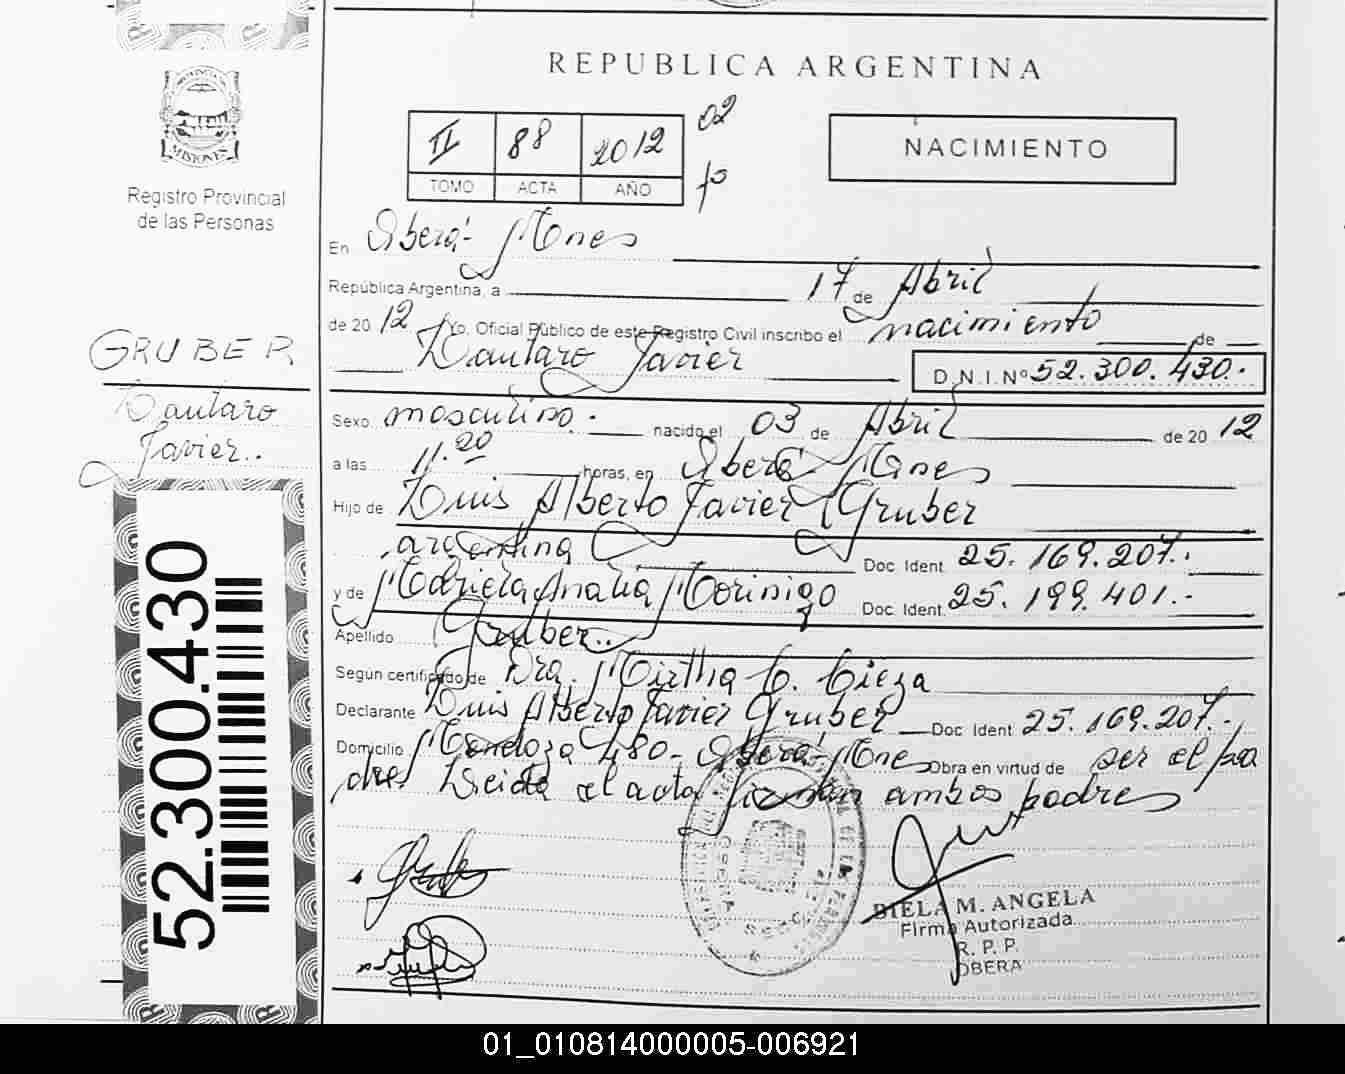 REPUBLICA ARGENTINA
MISIONES
Registro Provincial
de las Personas
II 88 2012 02
TOMO ACTA AÑO
NACIMIENTO
En Oberá - Mnes
República Argentina, a 17 de Abril
de 20 12 Yo. Oficial Público de este Registro Civil inscribo el nacimiento de
Lautaro Javier D.N.I.Nº 52.300.430.-
GRUBER
Lautaro
Javier..
Sexo masculino.- nacido el 03 de Abril de 20 12
a las 11.20 horas, en Oberá - Mnes
Hijo de Luis Alberto Javier Gruber
argentina Doc Ident. 25.169.207.-
y de Mariela Analia Morinigo Doc Ident. 25.199.401.-
Apellido Gruber..
Según certificado de Dra. Mirtha C. Cieza
Declarante Luis Alberto Javier Gruber Doc Ident 25.169.207.-
Domicilio Mendoza 480 - Oberá - Mnes Obra en virtud de ser el pa
dre. Leida el acta firman ambos padres
BIELA M. ANGELA
Firma Autorizada
R. P. P.
OBERA
52.300.430
01_010814000005-006921